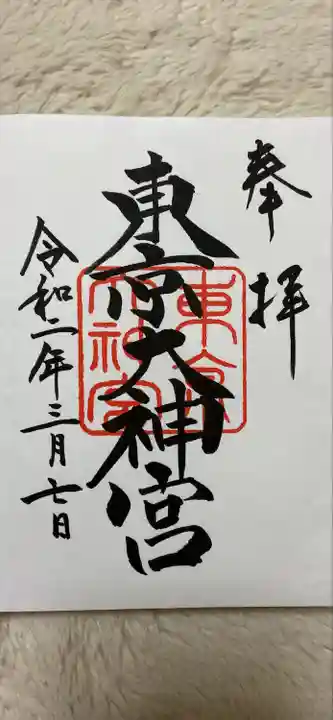 奉拝
東京大神宮
令和二年三月七日
東京
大神宮